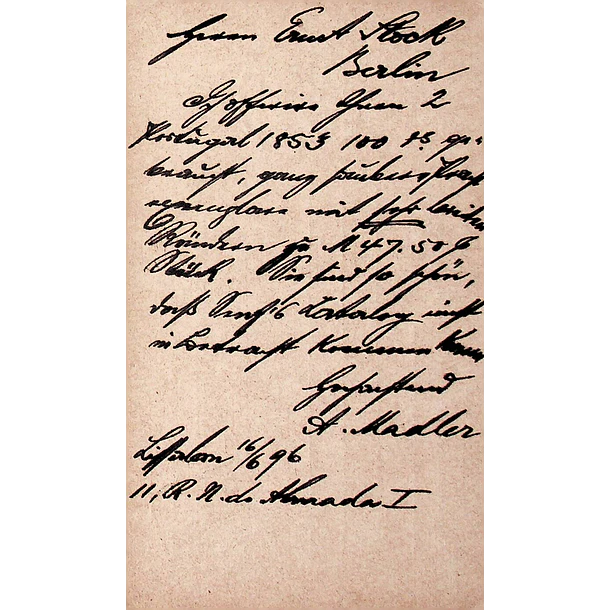 Herrn Ernst Stock
Berlin
Ich offerire Ihnen 2
Portugal 1853 100 rs ge-
braucht, ganz saubere Pracht
exemplare mit sehr breiten
Rändern zu M 47.50 p
Stück. Sie sind so schön,
daß Senf's Catalog nicht
in Betracht kommen kann
Hochachtend
A. Madler
Lissabon 16/6 96
11, R. N. do Almada I